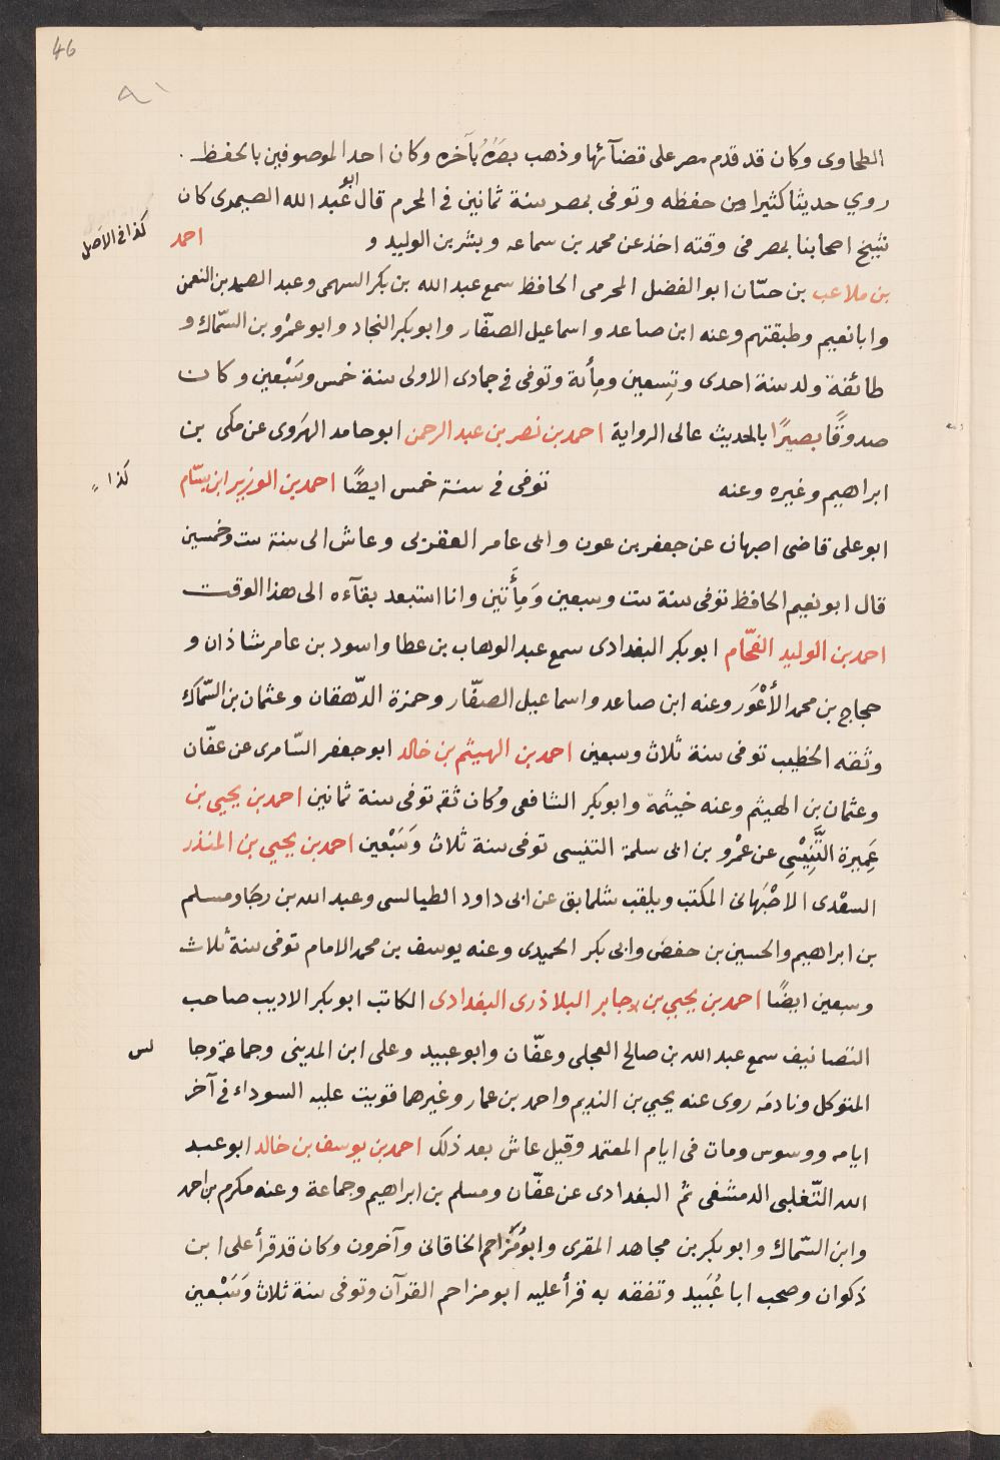 46
٩١
الطحاوى وكان قد قدم مصر على قضآئها وذهب بصَرُهُ بآخره وكان احد الموصوفين بالحفظ .
روي حديثا كثيرا من حفظه وتوفى بمصر سنة ثمانين فى المحرم قال ابو عبد الله الصيمرى كان
شيخ اصحابنا بمصر فى وقته اخذ عن محمد بن سماعه وبشر بن الوليد و احمد
كذا فى الاصل
بن ملاعب بن حسّان ابو الفضل المخرمى الحافظ سمع عبد الله بن بكر السهمى وعبد الصمد بن النعمن
وابا نعيم وطبقتهم وعنه ابن صاعد واسماعيل الصفّار وابو بكر النجاد وابو عمْرو بن السّماك و
طائفة ولد سنة احدى وتِسعين ومِأئة وتوفى فى جمادى الاولى سنة خمس وسَبْعين وكان
صدوقًا بصيرًا بالحديث عالى الرواية احمد بن نصر بن عبد الرحمن ابو حامد الهَروى عن مكى بن
ابراهيم وغيره وعنه توفى فى سنة خمس ايضًا احمد بن الوزير ابن بسّام
كذا
ابو على قاضى اصبهان عن جعفر بن عون وابى عامر العقدى وعاش الى سنة ست وخمسين
قال ابو نعيم الحافظ توفى سنة ست وسبعين وَمِأَتين وانا استبعد بقآءه الى هذا الوقت
احمد بن الوليد الفحّام ابو بكر البغدادى سمع عبد الوهاب بن عطا واسود بن عامر شاذان و
حجاج بن محمد الأعْوَر وعنه ابن صاعد واسماعيل الصفّار وحمزة الدّهقان وعثمان بن السّماك
وثقه الخطيب توفى سنة ثلاث وسبعين احمد بن الهيثم بن خالد ابو جعفر السّامرى عن عفّان
وعثمان بن الهيثم وعنه خيثمة وابو بكر الشافعى وكان ثقه توفى سنة ثمانين احمد بن يحيى بن
عَمِيرة التِّنِيْسِى عن عمْرو بن ابى سلمة التنيسى توفى سنة ثلاث وَسَبْعين احمد بن يحيي بن المنذر
السعْدى الاصْبَهانى المكتب ويلقب شلمابق عن ابى داود الطيالسى وعبد الله بن رجا ومسلم
بن ابراهيم والحسين بن حفص وابى بكر الحميدى وعنه يوسف بن محمد الامام توفى سنة ثلاث
وسبعين ايضًا احمد بن يحيي بن جابر البلاذرى البغدادى الكاتب ابو بكر الاديب صاحب
التصانيف سمع عبد الله بن صالح العجلى وعفّان وابو عبيد وعلى ابن المدينى وجماعة وجا
لس
المتوكل ونادمَه روى عنه يحيي بن النديم واحمد بن عمار وغيرهما قويت عليه السوداء فى آخر
ايامه ووسوس ومات فى ايام المعتمد وقيل عاش بعد ذلك احمد بن يوسف بن خالد ابو عبد
الله التّغلبى الدمشقى ثم البغدادى عن عفّان ومسلم بن ابراهيم وجماعة وعنه مكرم بن احمد
وابن السّماك وابو بكر بن مجاهد المقرى وابو مُزاحم الخاقانى وآخرون وكان قد قرأ على ابن
ذكوان وصحب ابا عُبَيد وتفقه به قرأ عليه ابو مزاحم القرآن وتوفى سنة ثلاث وَسَبْعين